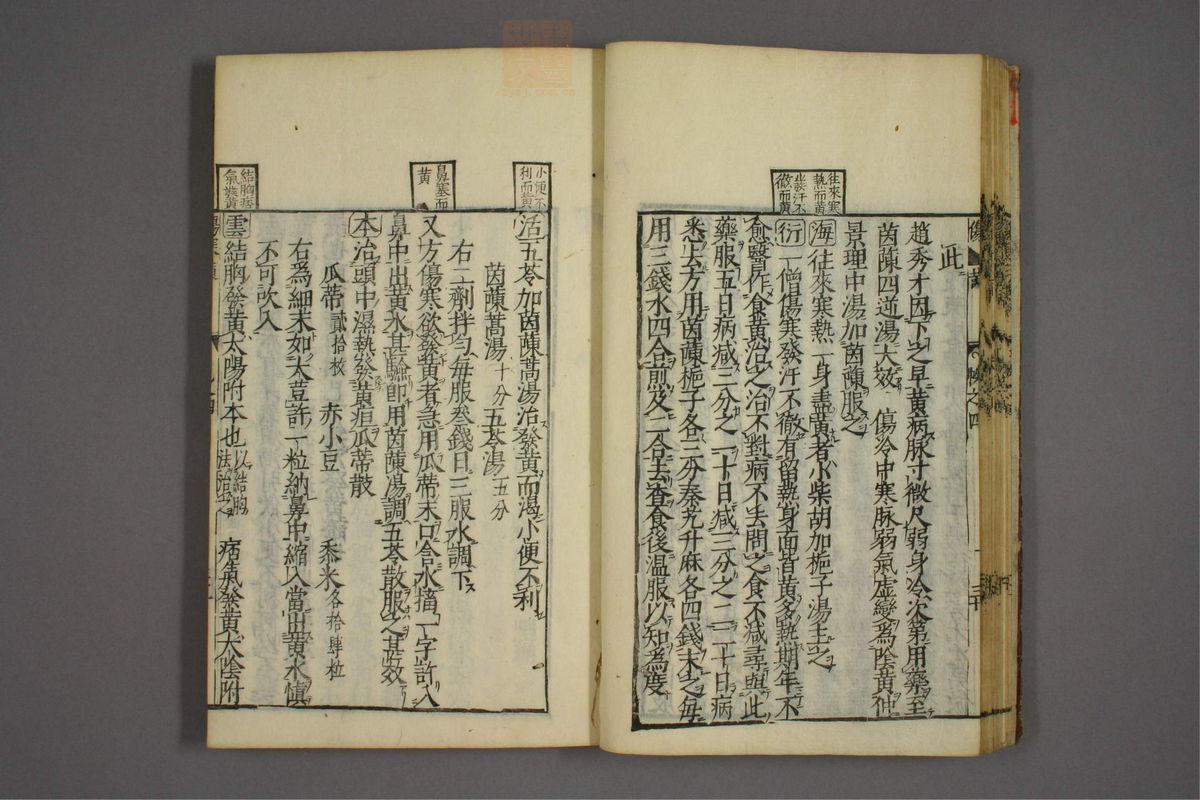 此
趙秀才因下之早黃病脉寸微尺弱身冷次第用藥至
茵蔯四逆湯大效 傷冷中寒脉弱氣虛變為陰黃仲
景理中湯加茵蔯服之
往來寒
熱而黃
發汗不
徹而黃
海往來寒熱一身盡黃者小柴胡加梔子湯主之
衍一僧傷寒發汗不徹有留熱身面皆黃多熱期年不
愈醫作食黃治之治不對病不去問之食不減尋與此
藥服五日病減三分之一十日減三分之二二十日病
悉去方用茵蔯梔子各三分秦艽升麻各四錢末之每
用三錢水四合煎及二合去查食後溫服以知為度
小便不
利而黃
活五苓加茵蔯蒿湯治發黃而渴小便不利
茵蔯蒿湯十分五苓湯五分
右二劑拌勻每服叁錢日三服水調下
鼻塞而
黃
又方傷寒欲發黃者急用瓜蒂末口含水搐一字許入
鼻中出黃水甚驗即用茵蔯湯調五苓散服之甚效
本治頭中濕熱發黃疸瓜蒂散
瓜蒂貳拾枚 赤小豆 黍米各拾肆粒
右為細末如大荳許一粒納鼻中縮入當出黃水慎
不可吹入
結胸痞
氣發黃
雲結胸發黃太陽附本也以結胸法治之 痞氣發黃太陰附